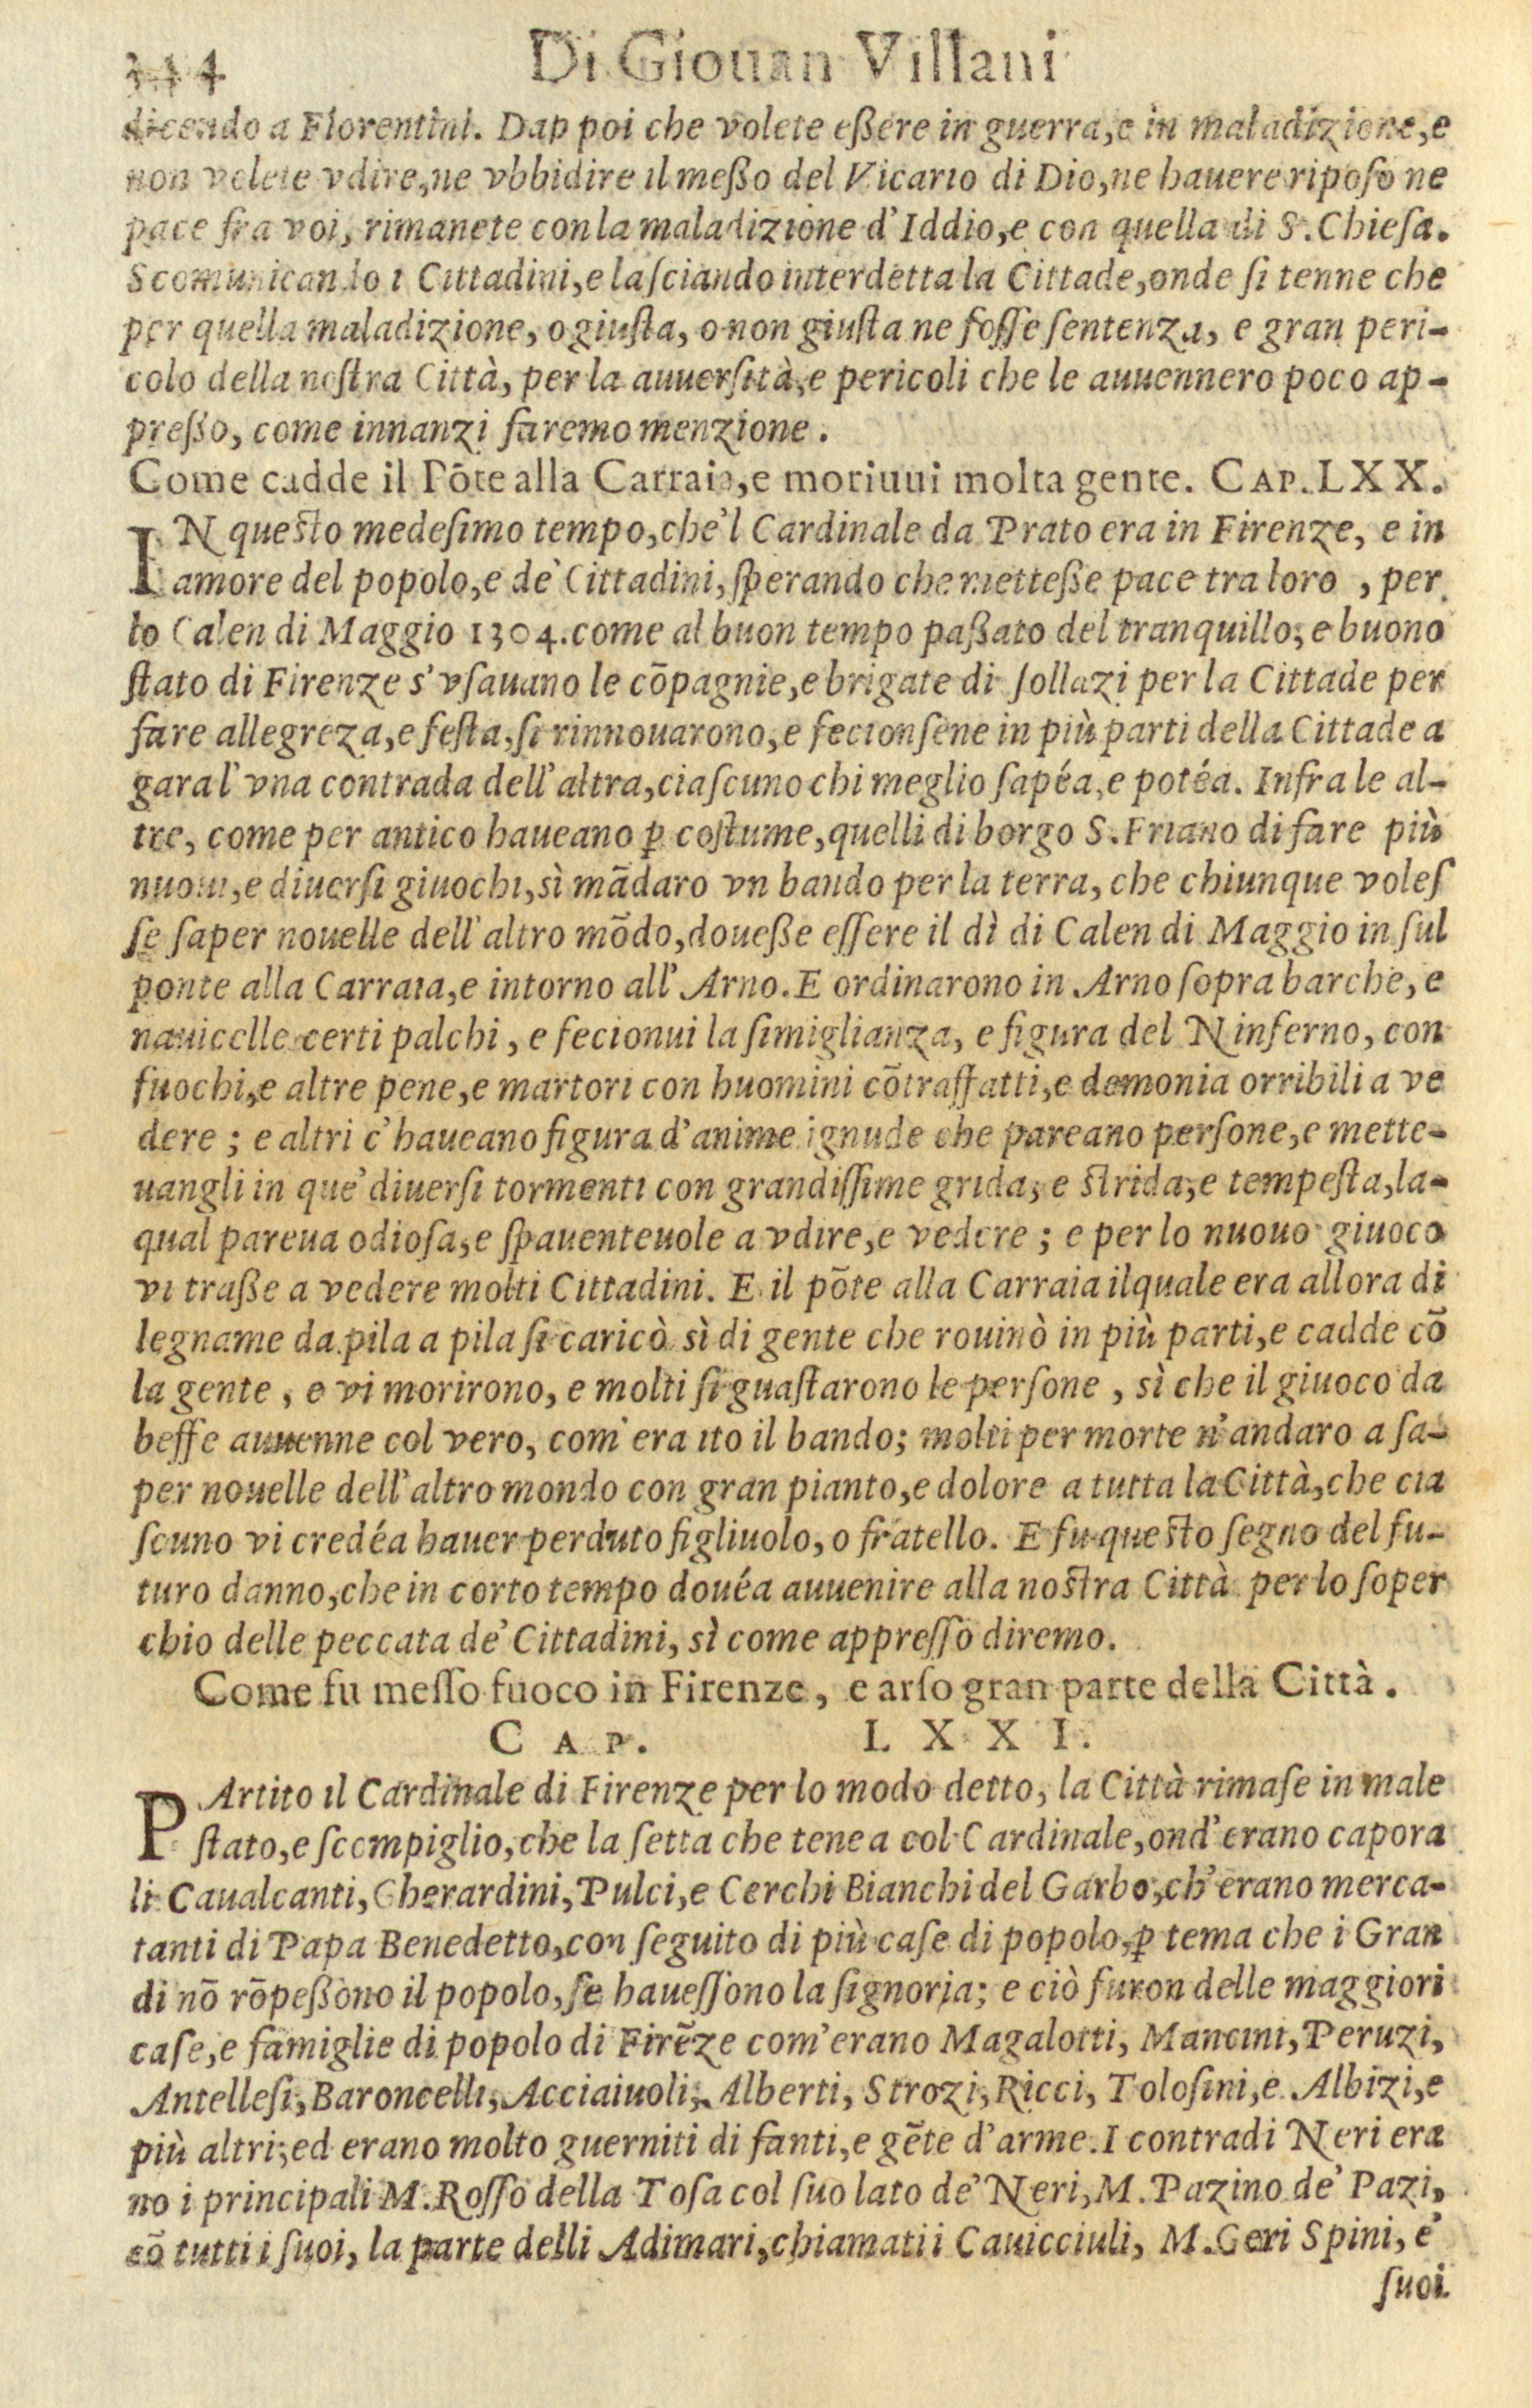 344 Di Giouan Villani
dicendo a Fiorentini. Dap poi che volete eßere in guerra, e in maladizione, e
non volete vdire, ne vbbidire il meßo del Vicario di Dio, ne hauere riposo ne
pace fra voi, rimanete con la maladizione d'Iddio, e con quella di S. Chiesa.
Scomunicando i Cittadini, e lasciando interdetta la Cittade, onde si tenne che
per quella maladizione, o giusta, o non giusta ne fosse sentenza, e gran peri-
colo della nostra Città, per la auuersità, e pericoli che le auuennero poco ap-
preßo, come innanzi faremo menzione.
Come cadde il Põte alla Carraia, e moriuui molta gente. CAP. LXX.
IN questo medesimo tempo, che'l Cardinale da Prato era in Firenze, e in
amore del popolo, e de' Cittadini, sperando che metteße pace tra loro, per
lo Calen di Maggio 1304. come al buon tempo paßato del tranquillo, e buono
stato di Firenze s'vsauano le cõpagnie, e brigate di sollazi per la Cittade per
fare allegreza, e festa, si rinnouarono, e fecionsene in più parti della Cittade a
gara l'vna contrada dell'altra, ciascuno chi meglio sapéa, e potéa. Infra le al-
tre, come per antico haueano ꝑ costume, quelli di borgo S. Friano di fare più
nuoui, e diuersi giuochi, sì mãdaro vn bando per la terra, che chiunque voles
se saper nouelle dell'altro mõdo, doueße essere il dì di Calen di Maggio in sul
ponte alla Carraia, e intorno all'Arno. E ordinarono in Arno sopra barche, e
nauicelle certi palchi, e fecionui la simiglianza, e figura del Ninferno, con
fuochi, e altre pene, e martori con huomini cõtraffatti, e demonia orribili a ve
dere; e altri c'haueano figura d'anime ignude che pareano persone, e mette-
uangli in que' diuersi tormenti con grandissime grida, e strida, e tempesta, la-
qual pareua odiosa, e spauenteuole a vdire, e vedere; e per lo nuouo giuoco
vi traße a vedere molti Cittadini. E il põte alla Carraia ilquale era allora di
legname da pila a pila si caricò sì di gente che rouinò in più parti, e cadde cõ
la gente, e vi morirono, e molti si guastarono le persone, sì che il giuoco da
beffe auuenne col vero, com'era ito il bando; molti per morte n'andaro a sa-
per nouelle dell'altro mondo con gran pianto, e dolore a tutta la Città, che cia
scuno vi credéa hauer perduto figliuolo, o fratello. E fu questo segno del fu-
turo danno, che in corto tempo douéa auuenire alla nostra Città per lo soper
chio delle peccata de' Cittadini, sì come appresso diremo.
Come fu messo fuoco in Firenze, e arso gran parte della Città.
CAP. LXXI.
PArtito il Cardinale di Firenze per lo modo detto, la Città rimase in male
stato, e scompiglio, che la setta che tenea col Cardinale, ond'erano capora
li Caualcanti, Gherardini, Pulci, e Cerchi Bianchi del Garbo, ch'erano merca-
tanti di Papa Benedetto, con seguito di più case di popolo, ꝑ tema che i Gran
di nõ rõpeßono il popolo, se hauessono la signoria; e ciò furon delle maggiori
case, e famiglie di popolo di Firẽze com'erano Magalotti, Mancini, Peruzi,
Antellesi, Baroncelli, Acciaiuoli, Alberti, Strozi, Ricci, Tolosini, e Albizi, e
più altri, ed erano molto guerniti di fanti, e gẽte d'arme. I contradi Neri era
no i principali M. Rosso della Tosa col suo lato de' Neri, M. Pazino de' Pazi,
cõ tutti i suoi, la parte delli Adimari, chiamati i Cauicciuli, M. Geri Spini, e'
suoi